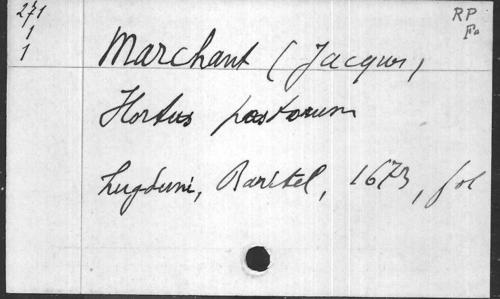 271
1
1
RP
Fo
Marchant (Jacques)
Hortus pastorum
Lugduni, Baritel, 1673, fol